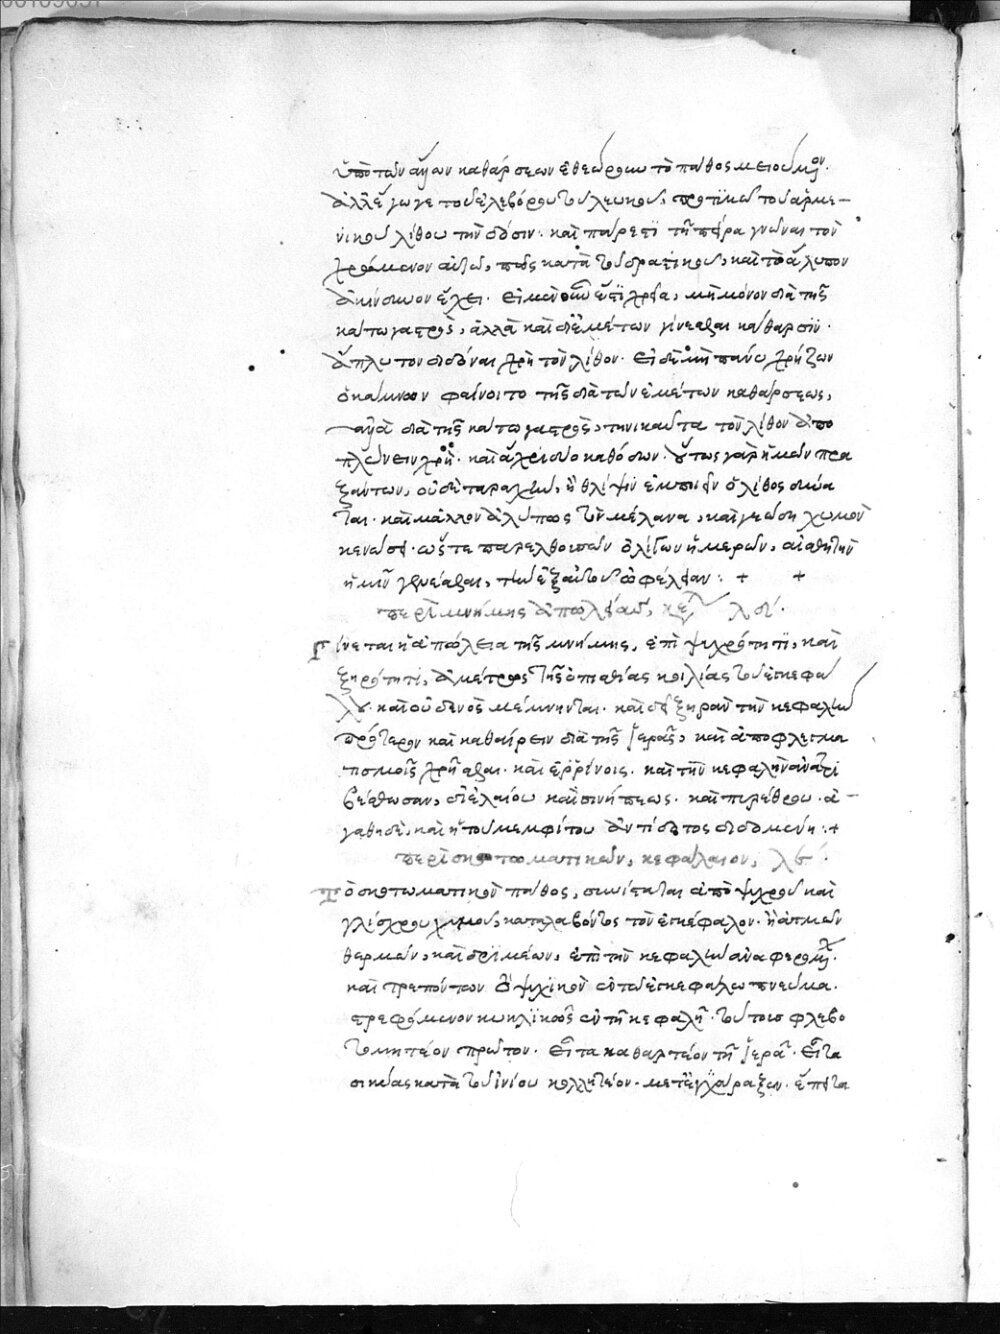 ὑπὸ τῶν ἄλλων καθάρσεων ἐθεώρουν τὸ πάθος μειούμενον.
ἀλλ' ἔγωγε τοῦ ἐλεβόρου τοῦ λευκοῦ, προτιμῶ τοῦ ἀρμε-
νικοῦ λίθου τὴν δόσιν· καὶ πάρεστι τῇ πείρα γνῶναι τὸν
χρώμενον αὐτῶ, πῶς κατὰ τοῦ δραστικοῦ, καὶ τὸ ἄλυπον
ἀκίνδυνον ἔχει. εἰ μὲν οὖν εὔη χρεία, μὴ μόνον διὰ τῆς
κάτω γαστρὸς, ἀλλὰ καὶ δι' ἐμέτων γίνεσθαι κάθαρσιν·
ἄπλυτον διδόναι χρὴ τὸν λίθον· εἰ δὲ μὴ πάνυ χρήζων
ὁ κάμνων φαίνοιτο τῆς διὰ τῶν ἐμέτων καθάρσεως,
ἀλλὰ διὰ τῆς κάτω γαστρὸς, τηνικαῦτα τὸν λίθον ἀπο
πλύνειν χρὴ· καὶ ἄχρι δυοκαθόσων· οὕτως γὰρ ἡμῶν πρα
ξάντων, οὐδὲ ταραχὴν, ἢ θλίψιν ἐμποιεῖν ὁ λίθος δύνα
ται· καὶ μάλλον ἀλύπως τὸν μέλανα, καὶ γεώδη χυμὸν
κενώσει· ὥστε παρελθουσῶν ὀλίγων ἡμερῶν, αἰσθητὴν
ἡμῖν γενέσθαι, τὴν ἐξ αὐτοῦ ὠφέλειαν: + +
περὶ μνήμης ἀπωλείας, κεφ λδ΄.
Γίνεται ἡ ἀπώλεια τῆς μνήμης, ἐπὶ ψυχρότητι, καὶ
ξηρότητι, ἀμέτρως τῆς ὀπισθίας κοιλίας τοῦ ἐγκεφά
λου· καὶ οὐδενὸς μέμνηνται· καὶ δεῖ ξηρᾶν τὴν κεφαλὴν
πρότερον καὶ καθαίρειν διὰ τῆς ἱερᾶς, καὶ ἀποφλεγμα
τισμοῖς χρῆσθαι· καὶ ἐρρίνοις· καὶ τὴν κεφαλὴν ἀνατρι
βέσθωσαν, δι' ἐλαίου καὶ σινήπεως· καὶ πυρέθρου· ἀ-
γαθὴ δὲ, καὶ ἡ τοῦ μεμφίτου ἀντίδοτος διδομένη :+
περὶ σκοτωματικῶν, κεφάλαιον, λε΄.
Τὸ σκοτωματικὸν πάθος, συνίσταται ἀπὸ ψυχροῦ καὶ
γλίσχρου χυμοῦ, καταλαβόντος τὸν ἐγκέφαλον· ἢ ἀτμῶν
θερμῶν, καὶ δριμέων, ἐπὶ τὴν κεφαλὴν ἀναφερομένων·
καὶ τρεπόντων τὸ ψυχικὸν ἐν τῶ ἐγκεφάλω πνεῦμα.
στρεφόμενον κυκλικῶς ἐν τῇ κεφαλῇ· τούτοισ φλεβο
τομητέον πρῶτον· εἶτα καθαρτέον τῇ ἱερᾶ· εἶτα
σικύας κατὰ τοῦ ἰνίου κολλητέον· μετ' ἐγχαράξεων· ἔπειτα